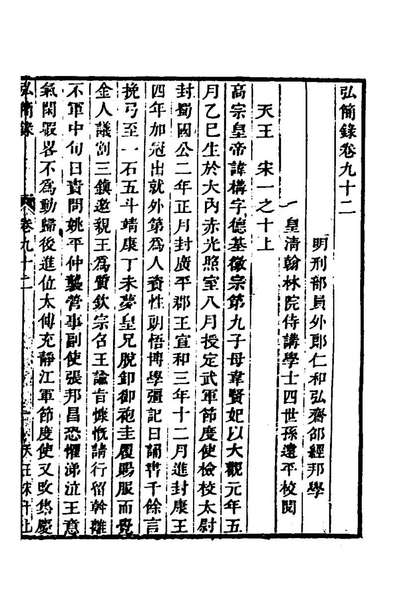 弘簡錄卷九十二
明刑部員外郎仁和弘齋邵經邦學
皇清翰林院侍講學士四世孫遠平校閱
天王 宋一之十上
高宗皇帝諱構字德基徽宗第九子母韋賢妃以大觀元年五
月乙巳生於大內赤光照室八月授定武軍節度使檢校太尉
封蜀國公二年正月封廣平郡王宣和三年十二月進封康王
四年加冠出就外第為人資性朗悟博學强記日誦書千餘言
挽弓至一石五斗靖康丁未夢皇兄脫卸御袍圭履賜服而覺
金人議割三鎮邀親王為質欽宗召王諭旨慷慨請行留斡離
不軍中旬日責問姚平仲襲營事副使張邦昌恐懼涕泣王意
氣閑暇畧不為動歸後進位太傅充靜江軍節度使又改集慶
弘簡錄 卷九十二 天王宋十上